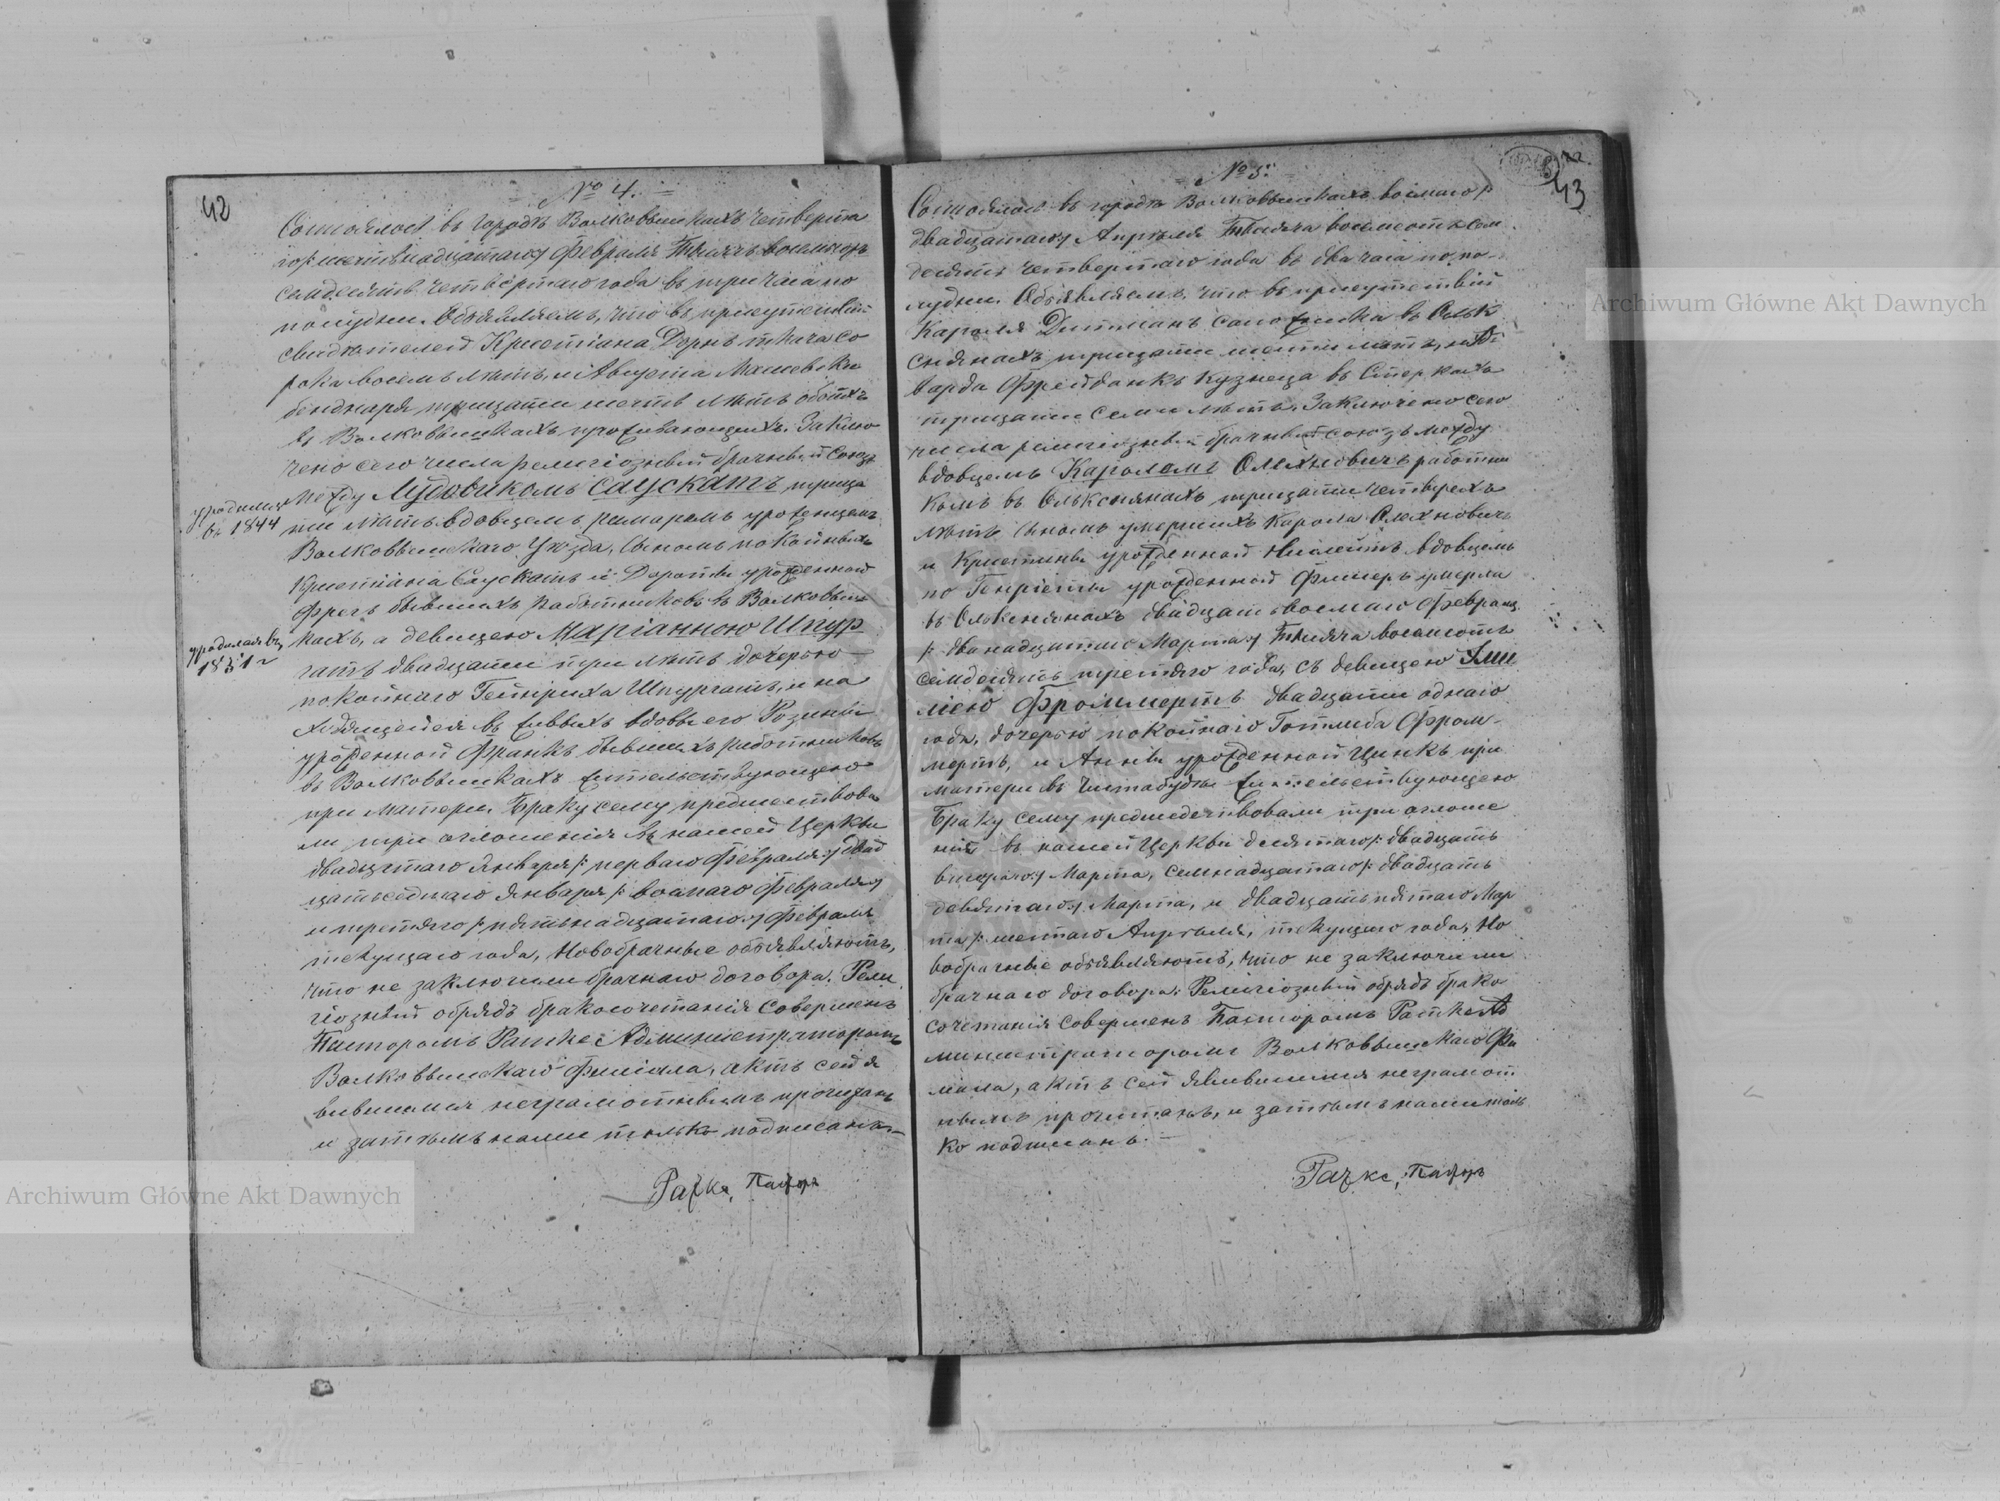 42
№ 4.
Состоялось въ городѣ Волковышкахъ четверта
го /: шестнадцатаго :/ Февраля Тысяча восемьсотъ
семдесятъ четвертаго года въ три часа по
полудни. Объявляемъ, что въ присутствіи
свидѣтелей Христіана Дорнъ ткача со
рока восемь лѣтъ, и Августа Машевски
беднаря тридцати шесть лѣтъ обоихъ
въ Волковышкахъ проживающихъ. Заклю
чено сего числа религіозный брачный союзъ
между Лудовикомъ Саускатъ, трица
ти лѣтъ вдовцемъ римаремъ уроженцемъ
Волковышскаго Уѣзда, сыномъ покойныхъ
Христіана Саускатъ и Доротѣи урожденной
бывшихъ работниковъ въ Волковыш
кахъ, а девицею Маріанною Шпур
гатъ двадцати три лѣтъ дочерью
покойнаго Гейнриха Шпургатъ, и на
ходящейся въ живыхъ вдовы его Розины
урожденной Франкъ бывшихъ работниковъ
въ Волковышкахъ жительствующею
при матери. Браку сему предшествова
ли три оглошенія въ нашей Церкви
двадцатаго Января /: перваго Февраля :/ двад
цать седмаго Января /: восмаго Февраля :/
и третяго /: пятьнадцатаго :/ Февраля
текущаго года, Новобрачные объявляютъ,
что не заключили брачнаго договора. Рели
гіозный обрядъ бракосочетанія совершенъ
Пасторомъ Ратке Администраторомъ
Волковышскаго Филіала, актъ сей я
вившимся неграмотнымъ прочитанъ
и затѣмъ нами только подписанъ.
Ратке, Пасторъ
уродился
въ 1844
уродилась въ
1851 г
43
№ 5.
Состоялось въ городѣ Волковышкахъ восмаго /:
двадцатаго :/ Апрѣля Тысяча восемсотъ сем
десятъ четвертаго года въ два часа по по-
лудни. Объявляемъ, что въ присутствіи
Кароля Дитманъ сапожника въ Ольк
снянахъ тридцати шести лѣтъ, и Эд
варда Фрейданкъ кузнеца въ Стеркахъ
тридцати семи лѣтъ. Заключено сего
числа религіозный брачный союзъ между
вдовцемъ Каролемъ Олехновичъ работни
комъ въ Ольксנянахъ тридцати четырехъ
лѣтъ сыномъ умершихъ Кароля Олехновичъ
и Христины урожденной вдовцемъ
по Генріеты урожденной Фишеръ умерла
въ Олксנянахъ двадцать восмаго Февраля
/: двенадцатаго Марта :/ Тысяча восемсотъ
семдесятъ третяго года, съ девицею Эми
ліею Фроммертъ двадцати однаго
года, дочерью покойнаго Готлиба Фром-
мертъ, и Анны урожденной Цинкъ при
матери въ Читабудѣ жительствующею
Браку сему предшедствовали три оглоше
нія въ нашей Церкви десятаго /: двадцать
втораго :/ Марта, семнадцатаго /: двадцать
девятаго :/ Марта, и двадцать пятаго Мар
та /: шестаго Апрѣля, текущаго года, Но
вобрачные объявляютъ, что не заключили
брачнаго договора. Религіозный обрядъ брако
сочетанія совершенъ Пасторомъ Ратке Ад
министраторомъ Волковышскаго Фи
ліала, актъ сей явившимся неграмот
нымъ прочитанъ, и затѣмъ нами толь
ко подписанъ.
Ратке, Пасторъ
Archiwum Główne Akt Dawnych
Archiwum Główne Akt Dawnych